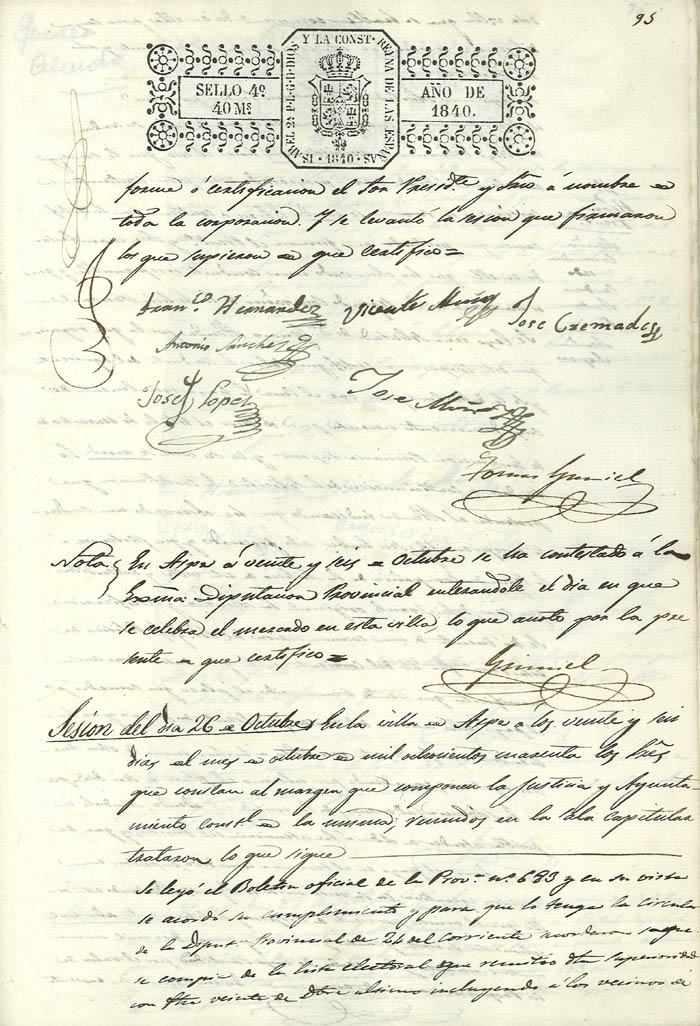 95
ISABEL 2ª P.L.G.D.DIOS Y LA CONST. REYNA DE LAS ESPAÑAS · 1840 ·
SELLO 4º
40 Ms
AÑO DE
1840.
forme ó certificacion el Sor Presid.te y Srio á nombre de
toda la corporacion. Y se levantó la sesion que firmaron
los que supieron de que certifico=
Fran.co Hernandez Vicente Muñoz Jose Cremades
Antonio Sanchez
Josef Lopez Jose Muñoz
Tomas Gumiel
Nota En Aspe á veinte y seis de Octubre se ha contestado á la
Exma Diputacion Provincial enterandole el dia en que
se celebra el mercado en esta villa, lo que anoto por la pre
sente de que certifico=
Gumiel
Sesion del dia 26 de Octubre En la villa de Aspe á los veinte y seis
dias del mes de octubre de mil ochocientos cuarenta los Sres
que constan al margen que componen la Justicia y Ayunta-
miento const.l de la misma, reunidos en la Sala Capitular
trataron lo que sigue
Se leyó el Boletin oficial de la Prov.a nº 683 y en su vista
se acordó su cumplimiento y para que la tenga la circular
de la Diput.n Provincial de 24 del corriente acordaron que
se compie de la lista electoral que remitió dha superioridad
con fha veinte de incluyendo á los vecinos de